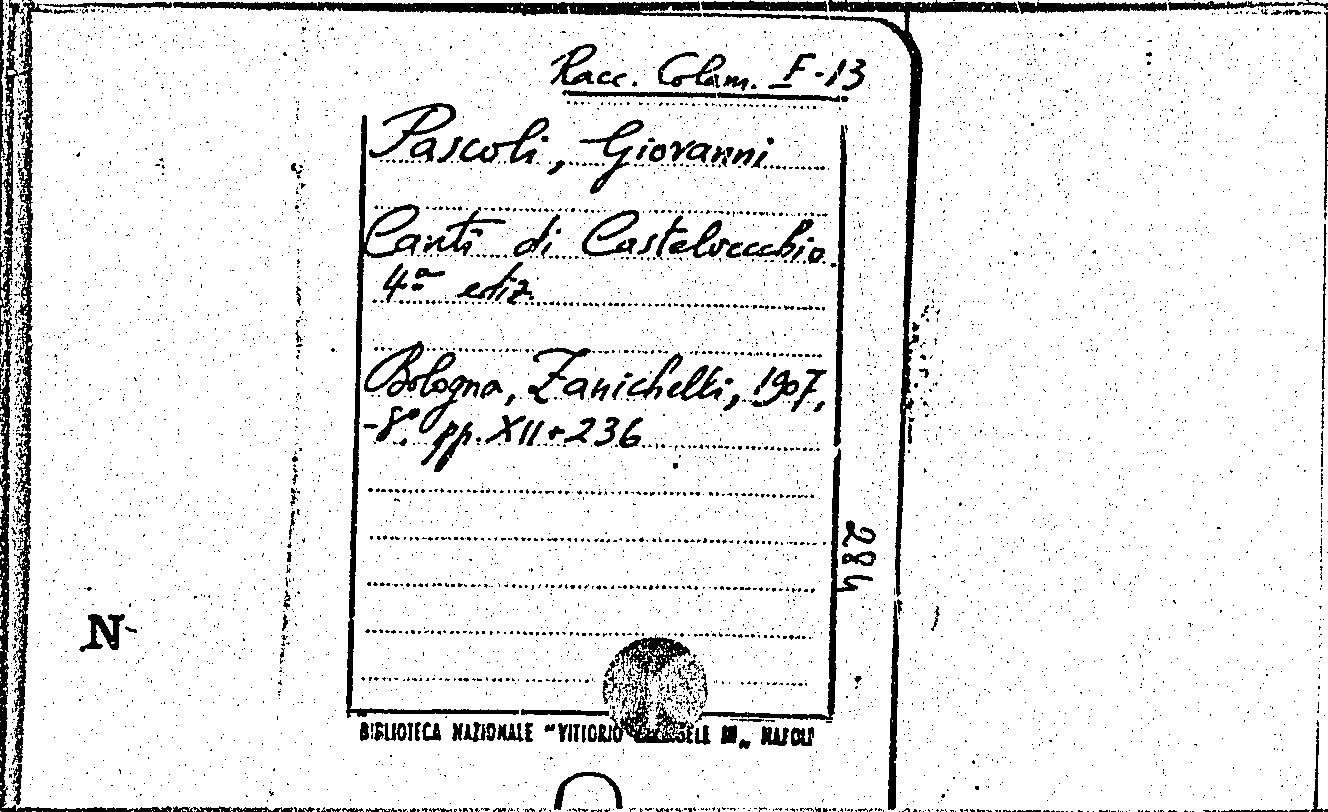 Racc. Colam. F-13
Pascoli, Giovanni
Canti di Castelvecchio.
4ª ediz.
Bologna, Zanichelli, 1907,
-8º. pp. XII+236
284
N
BIBLIOTECA NAZIONALE "VITTORIO EMANUELE III„ NAPOLI